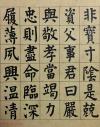 非寶寸陰是競
資父事君曰嚴
與敬孝當竭力
忠則盡命臨深
履薄夙興溫清